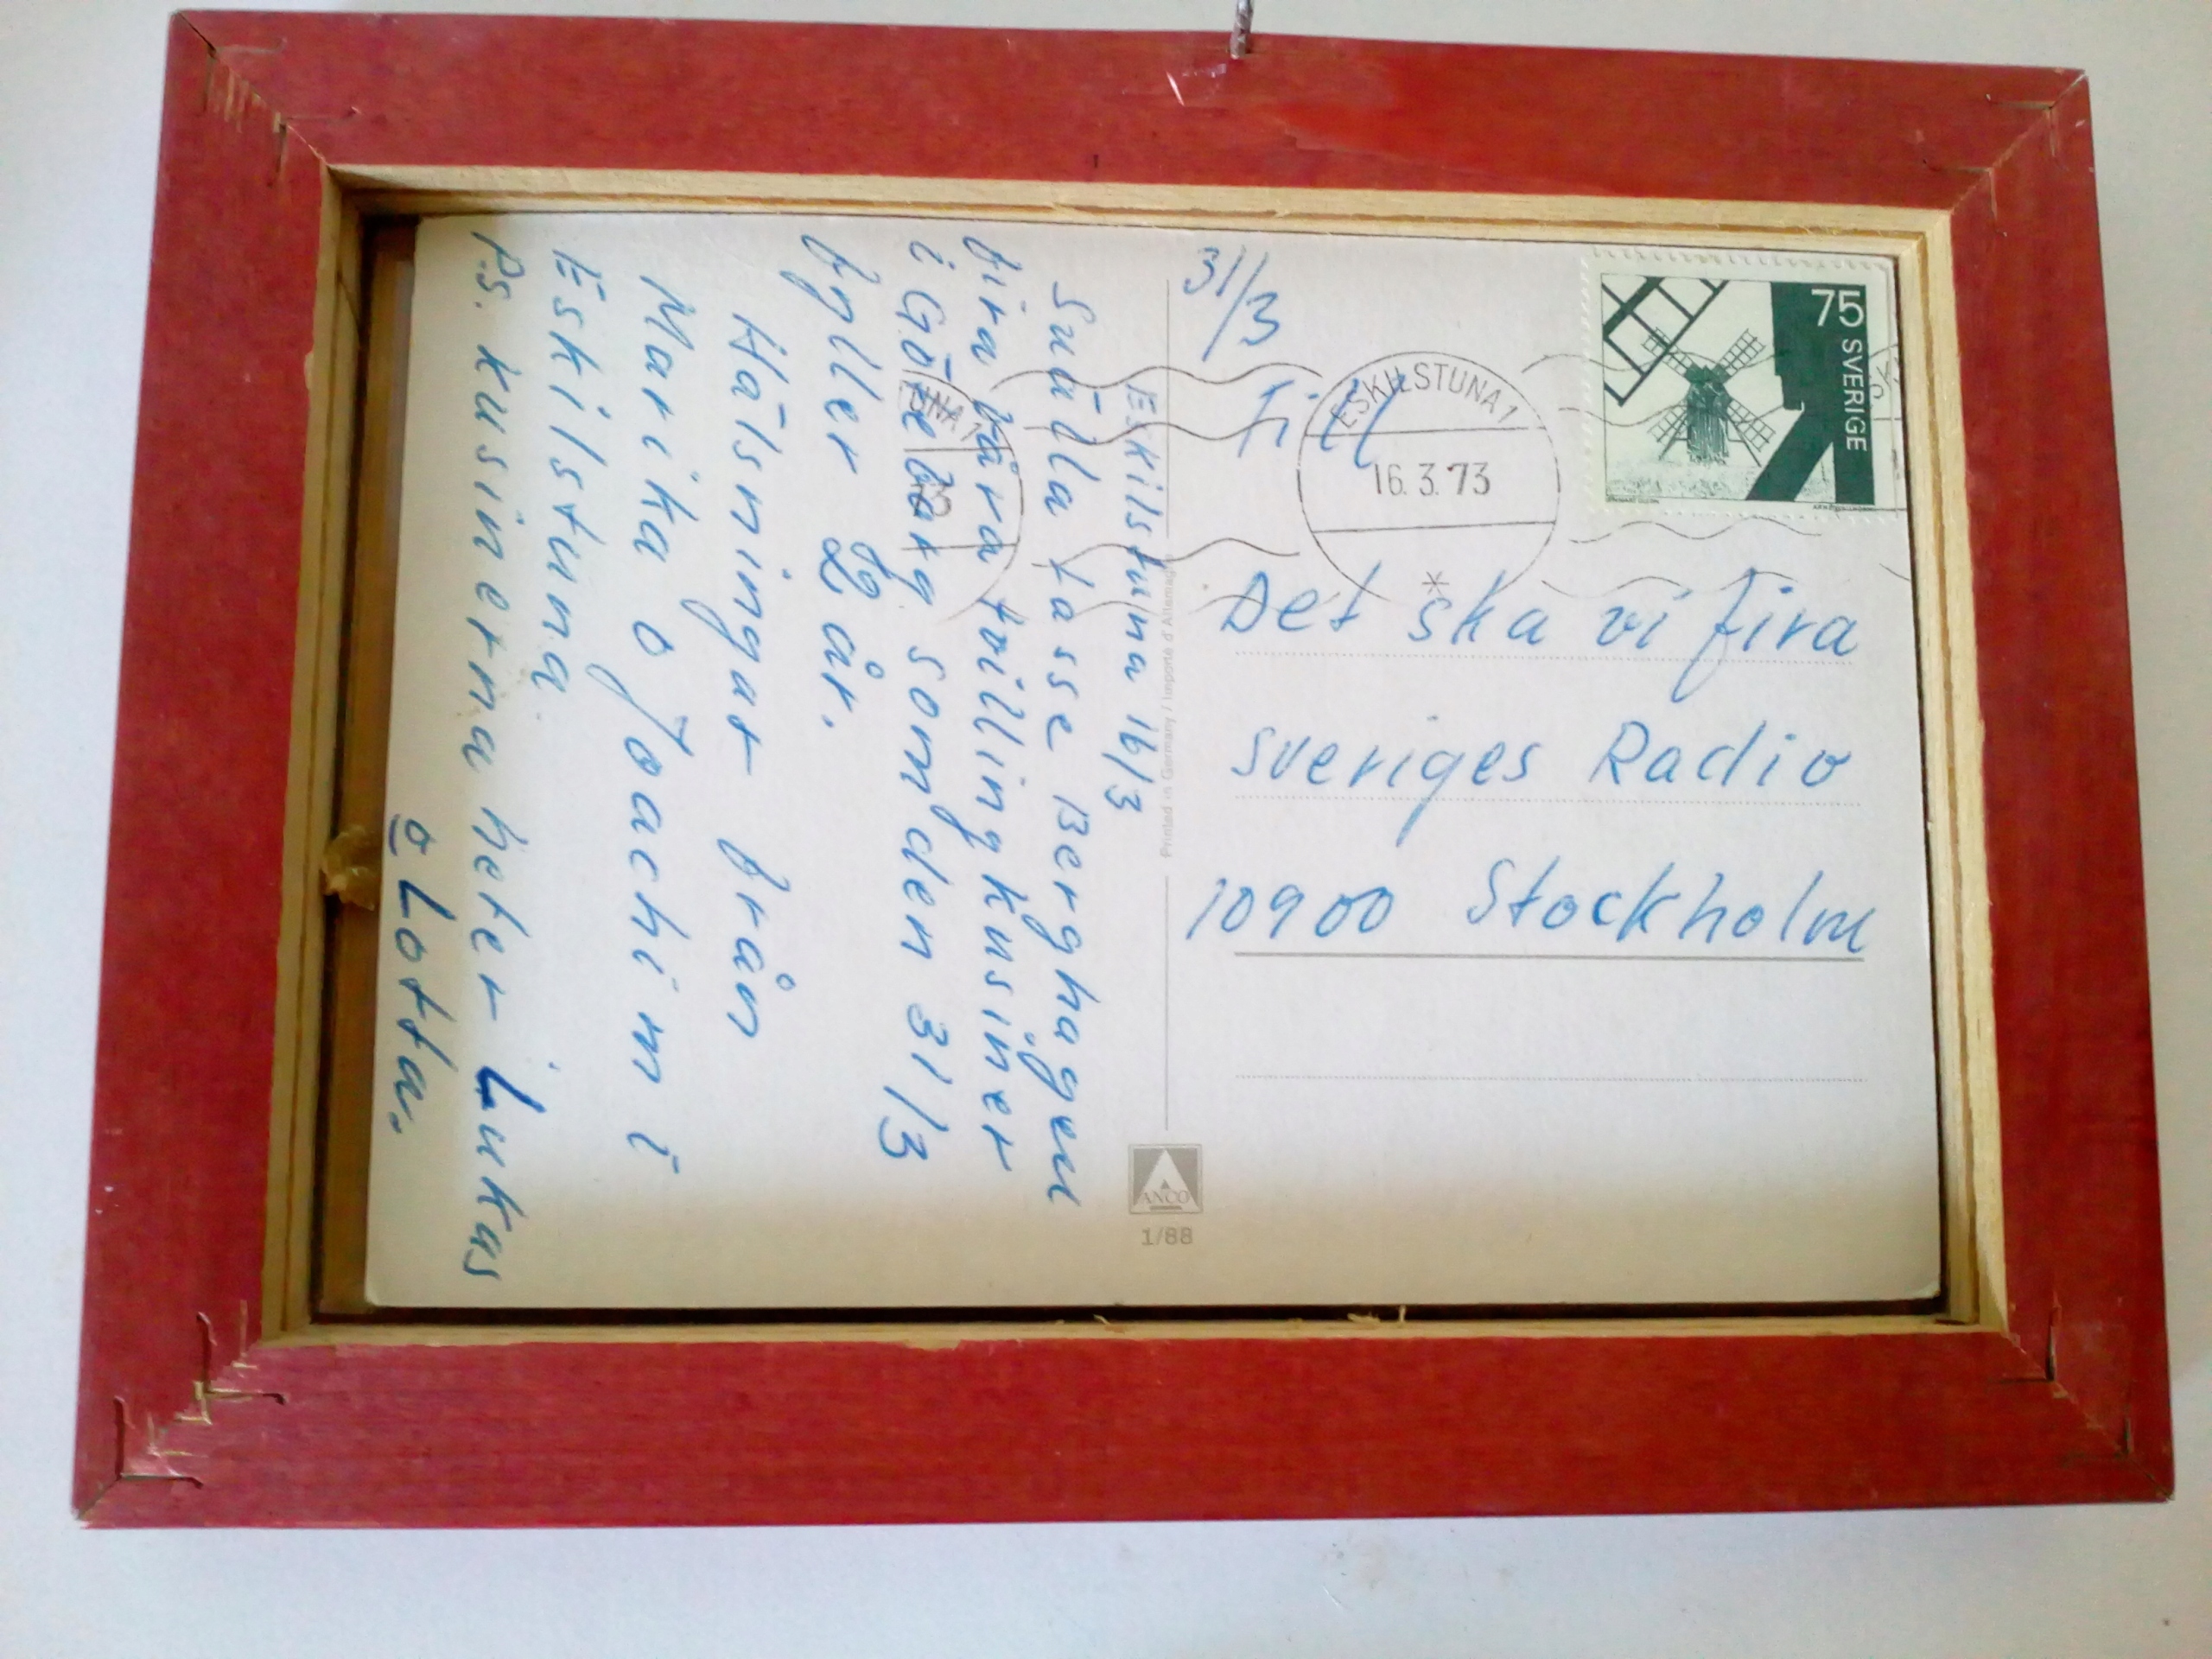 Eskilstuna 16/3
Snälla Lasse Berghagen
fira våra tvillingkusiner
i Göteborg som den 31/3
fyller 2 år.
Hälsningar från
Marika o Joachim i
Eskilstuna
P.s. kusinerna heter Lukas
o Lotta.
31/3
Till
Det ska vi fira
Sveriges Radio
10900 Stockholm
75 SVERIGE
ESKILSTUNA 1
16.3.73
TUNA 1
73
Printed in Germany / Importé d'Allemagne
ANCO
1/88